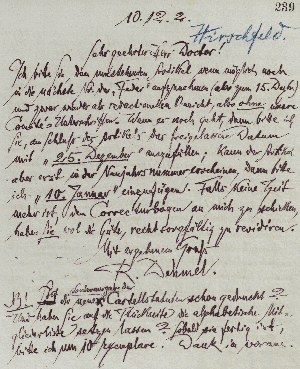 239
10.12.2.
Hirschfeld.
Sehr geehrter Herr Doctor!
Ich bitte Sie, den umstehenden Artikel wenn möglich noch
in die nächste No. der „Feder" aufzunehmen (also zum 15. Dezbr.)
und zwar wieder als redactionelle Ansicht, also ohne unsere
Comité-Unterschriften. Wenn es noch geht, dann bitte ich
Sie, am Schluß des Artikels das freigelassene Datum
mit „25. Dezember" auszufüllen; kann der Artikel
aber erst in der Neujahrsnummer erscheinen, dann bitte
ich „10. Januar" einzufügen. Falls keine Zeit
mehr ist, den Correcturbogen an mich zu schicken,
haben Sie wol die Güte, recht sorgfältig zu revidiren.
Mit ergebenem Gruß
R. Dehmel.
Ist die neue Cartellstatuten schon gedruckt?
Und haben Sie auf die Rückseite die alphabetische Mit-
gliederliste setzen lassen? Sobald sie fertig ist,
bitte ich um 10 Exemplare. Dank im voraus.